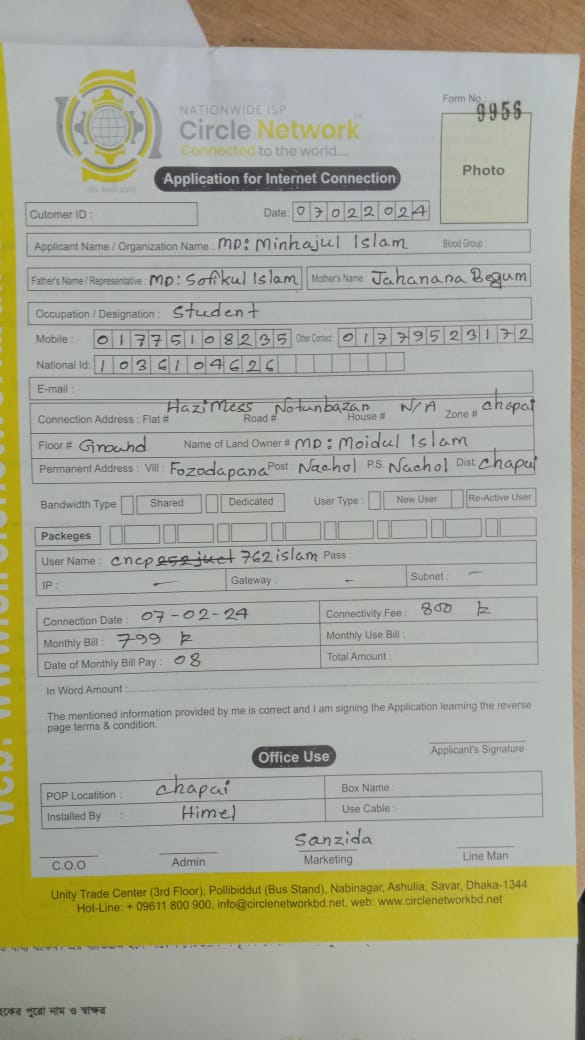 NATIONWIDE ISP
Circle Network
Connected to the world....
Form No :
9956
Photo
Application for Internet Connection
Cutomer ID :
Date: 07022024
Applicant Name / Organization Name : MD: Minhajul Islam Blood Group :
Father's Name / Representative : MD: Sofikul Islam Mother's Name : Jahanana Begum
Occupation / Designation : Student
Mobile : 01775108235 Other Contact : 01779523172
National Id: 1036104626
E-mail :
Connection Address : Flat# Hazi Mess Road # Notunbazan House # N/A Zone # chapai
Floor # Ground Name of Land Owner # MD: Moidul Islam
Permanent Address : Vill : Fozodapana Post : Nachol P.S. Nachol Dist. chapai
Bandwidth Type Shared Dedicated User Type : New User Re-Active User
Packeges
User Name : cncp 762islam Pass :
IP : — Gateway : – Subnet : –
Connection Date : 07-02-24 Connectivity Fee : 800
Monthly Bill : 799 Monthly Use Bill :
Date of Monthly Bill Pay : 08 Total Amount :
In Word Amount :
The mentioned information provided by me is correct and I am signing the Application learning the reverse
page terms & condition.
Applicant's Signature
Office Use
POP Locatition : chapai Box Name :
Installed By : Himel Use Cable :
Sanzida
C.O.O Admin Marketing Line Man
Unity Trade Center (3rd Floor), Pollibiddut (Bus Stand), Nabinagar, Ashulia, Savar, Dhaka-1344
Hot-Line: + 09611 800 900, info@circlenetworkbd.net, web: www.circlenetworkbd.net
হকের পুরো নাম ও স্বাক্ষর